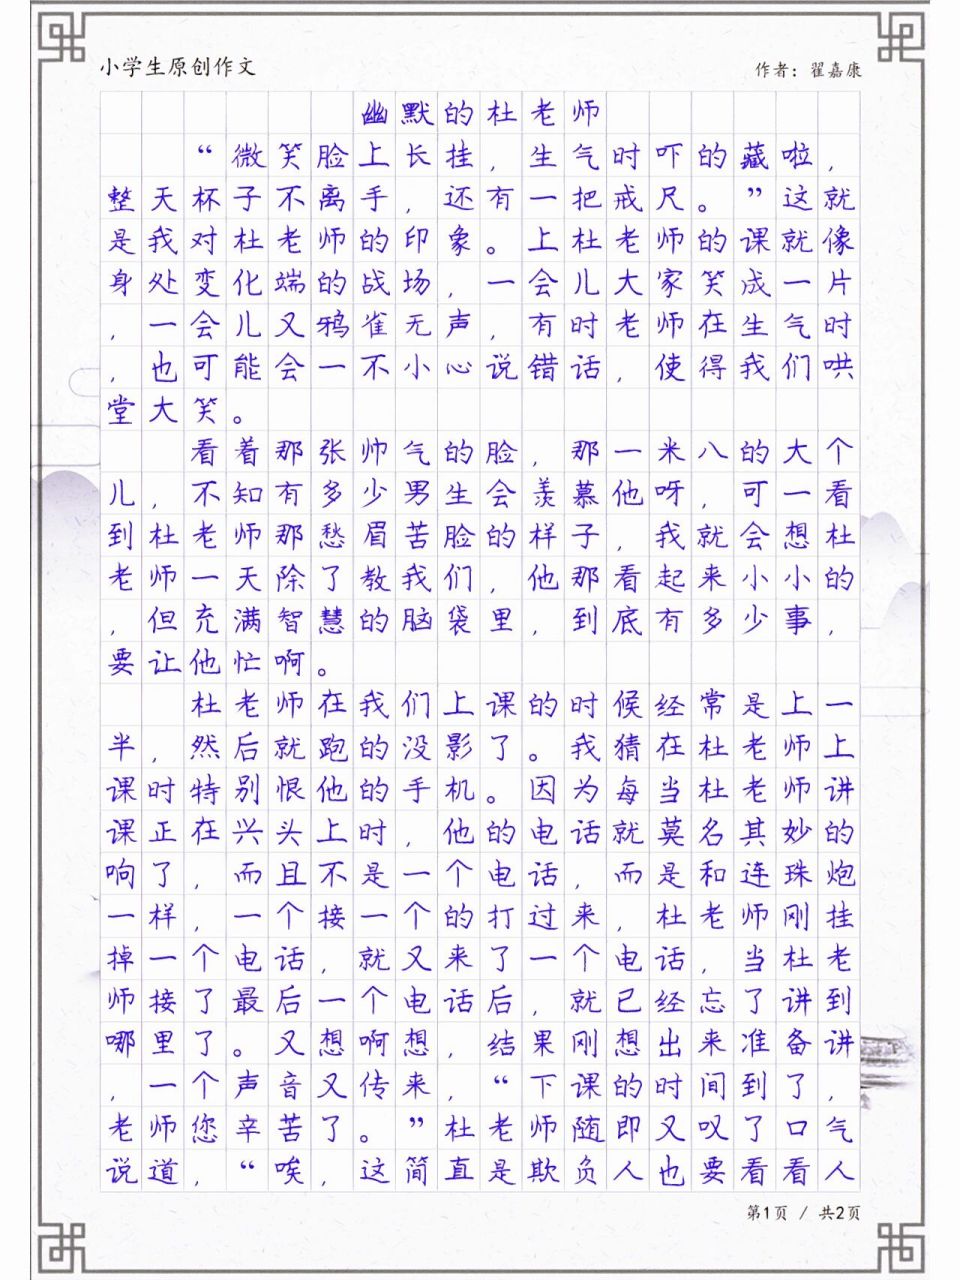 小学生原创作文
作者：翟嘉康
幽默的杜老师
“微笑脸上长挂，生气时吓的藏啦，
整天杯子不离手，还有一把戒尺。”这就
是我对杜老师的印象。上杜老师的课就像
身处变化端的战场，一会儿大家笑成一片
，一会儿又鸦雀无声，有时老师在生气时
，也可能会一不小心说错话，使得我们哄
堂大笑。
看着那张帅气的脸，那一米八的大个
儿，不知有多少男生会羡慕他呀，可一看
到杜老师那愁眉苦脸的样子，我就会想杜
老师一天除了教我们，他那看起来小小的
，但充满智慧的脑袋里，到底有多少事，
要让他忙啊。
杜老师在我们上课的时候经常是上一
半，然后就跑的没影了。我猜在杜老师上
课时特别恨他的手机。因为每当杜老师讲
课正在兴头上时，他的电话就莫名其妙的
响了，而且不是一个电话，而是和连珠炮
一样，一个接一个的打过来，杜老师刚挂
掉一个电话，就又来了一个电话，当杜老
师接了最后一个电话后，就已经忘了讲到
哪里了。又想啊想，结果刚想出来准备讲
，一个声音又传来，“下课的时间到了，
老师您辛苦了。”杜老师随即又叹了口气
说道，“唉，这简直是欺负人也要看看人
第1页 / 共2页